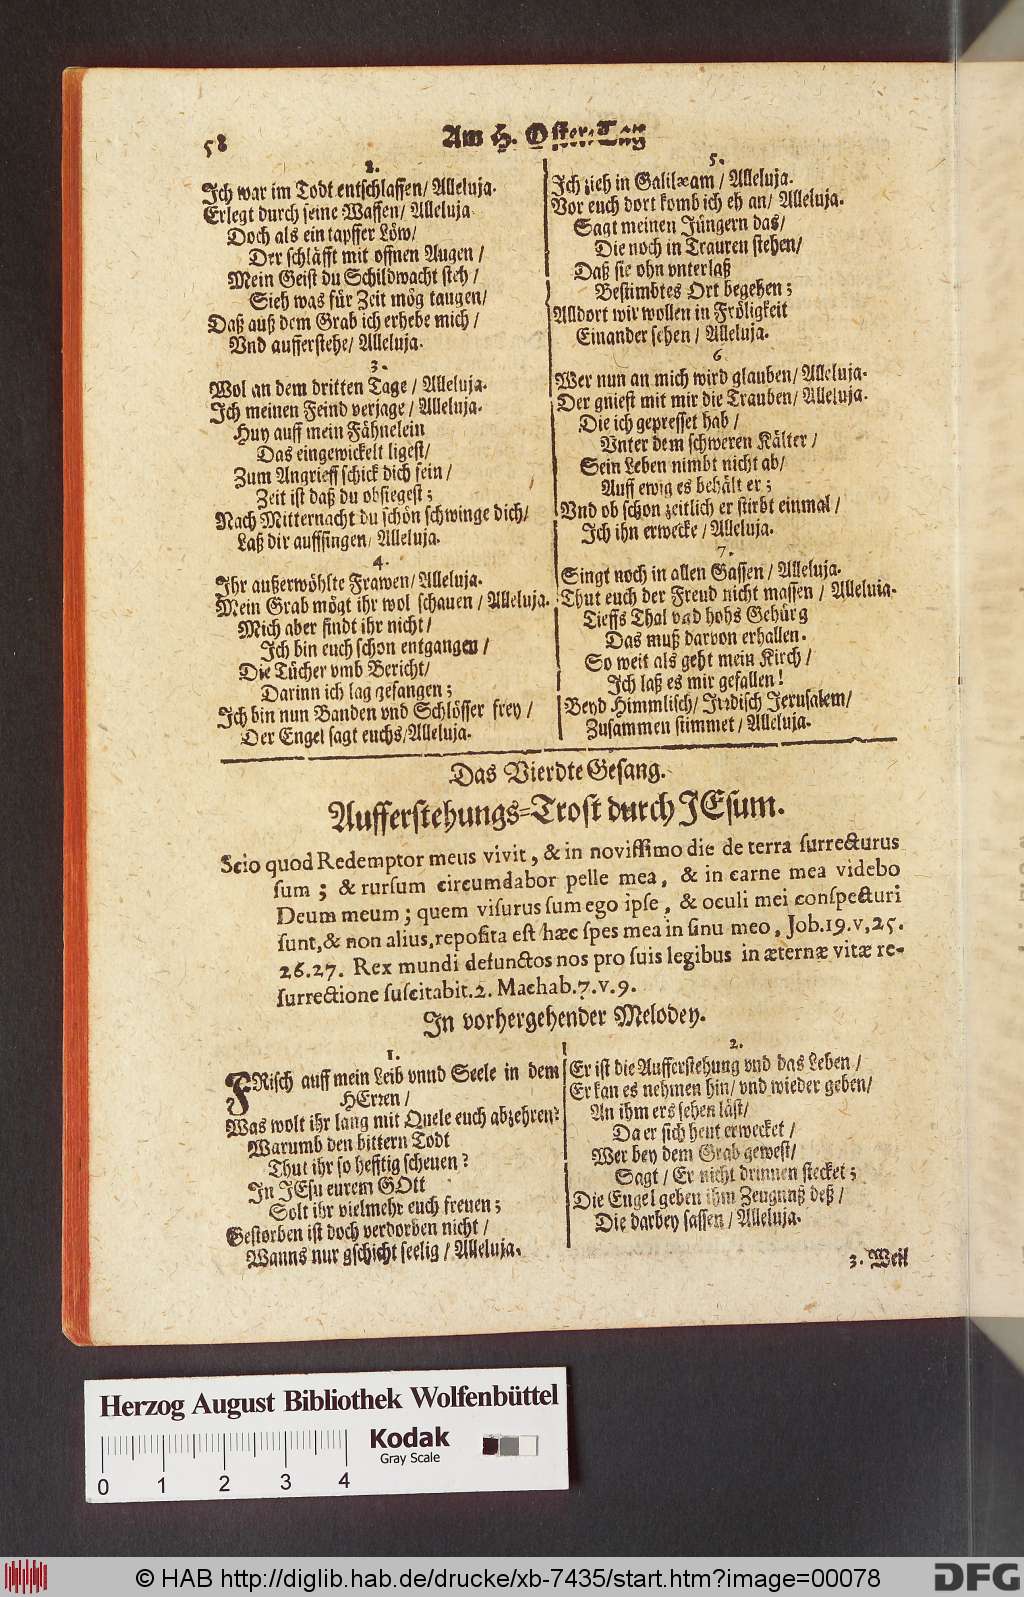 58
Am H. Oster-Tag
2.
Ich war im Todt entschlaffen / Alleluja.
Erlegt durch seine Waffen / Alleluja
Doch als ein tapffer Löw /
Der schläfft mit offnen Augen /
Mein Geist du Schildwacht steh /
Sieh was für Zeit mög taugen /
Daß auß dem Grab ich erhebe mich /
Vnd aufferstehe / Alleluja.
3.
Wol an dem dritten Tage / Alleluja.
Ich meinen Feind verjage / Alleluja.
Huy auff mein Fähnelein
Das eingewickelt ligest /
Zum Angrieff schick dich fein /
Zeit ist daß du obsiegest ;
Nach Mitternacht du schön schwinge dich /
Laß dir auffsingen / Alleluja.
4.
Ihr außerwöhlte Frawen / Alleluja.
Mein Grab mögt ihr wol schauen / Alleluja.
Mich aber findt ihr nicht /
Ich bin euch schon entgangen /
Die Tücher vmb Bericht /
Darinn ich lag gefangen ;
Ich bin nun Banden vnd Schlösser frey /
Der Engel sagt euchs / Alleluja.
5.
Ich zieh in Galilæam / Alleluja.
Vor euch dort komb ich eh an / Alleluja.
Sagt meinen Jüngern das /
Die noch in Trauren stehen /
Daß sie ohn vnterlaß
Bestimbtes Ort begehen ;
Alldort wir wollen in Fröligkeit
Einander sehen / Alleluja.
6
Wer nun an mich wird glauben / Alleluja.
Der gniest mit mir die Trauben / Alleluja.
Die ich gepresset hab /
Vnter dem schweren Kälter /
Sein Leben nimbt nicht ab /
Auff ewig es behält er ;
Vnd ob schon zeitlich er stirbt einmal /
Ich ihn erwecke / Alleluja.
7.
Singt noch in allen Gassen / Alleluja.
Thut euch der Freud nicht massen / Alleluia.
Tieffs Thal vnd hohs Gebürg
Das muß darvon erhallen.
So weit als geht mein Kirch /
Ich laß es mir gefallen !
Beyd Himmlisch / Irrdisch Jerusalem /
Zusammen stimmet / Alleluja.
Das Vierdte Gesang.
Aufferstehungs-Trost durch JEsum.
Scio quod Redemptor meus vivit, & in novissimo die de terra surrecturus
sum ; & rursum circumdabor pelle mea, & in carne mea videbo
Deum meum ; quem visurus sum ego ipse, & oculi mei conspecturi
sunt, & non alius, reposita est hæc spes mea in sinu meo, Job. 19. v, 25.
26. 27. Rex mundi defunctos nos pro suis legibus in æternæ vitæ re-
surrectione suscitabit. 2. Machab. 7. v. 9.
In vorhergehender Melodey.
1.
FRisch auff mein Leib vnnd Seele in dem
HErren /
Was wolt ihr lang mit Quele euch abzehren?
Warumb den bittern Todt
Thut ihr so hefftig scheuen ?
In JEsu eurem GOtt
Solt ihr vielmehr euch freuen ;
Gestorben ist doch verdorben nicht /
Wanns nur gschicht seelig / Alleluja.
2.
Er ist die Aufferstehung vnd das Leben /
Er kan es nehmen hin / vnd wieder geben /
An ihm ers sehen läst /
Da er sich heut erwecket /
Wer bey dem Grab gewest /
Sagt / Er nicht drinnen stecket ;
Die Engel geben ihm Zeugnuß deß /
Die darbey sassen / Alleluja.
3. Weil
Herzog August Bibliothek Wolfenbüttel
Kodak
Gray Scale
0 1 2 3 4
© HAB http://diglib.hab.de/drucke/xb-7435/start.htm?image=00078
DFG